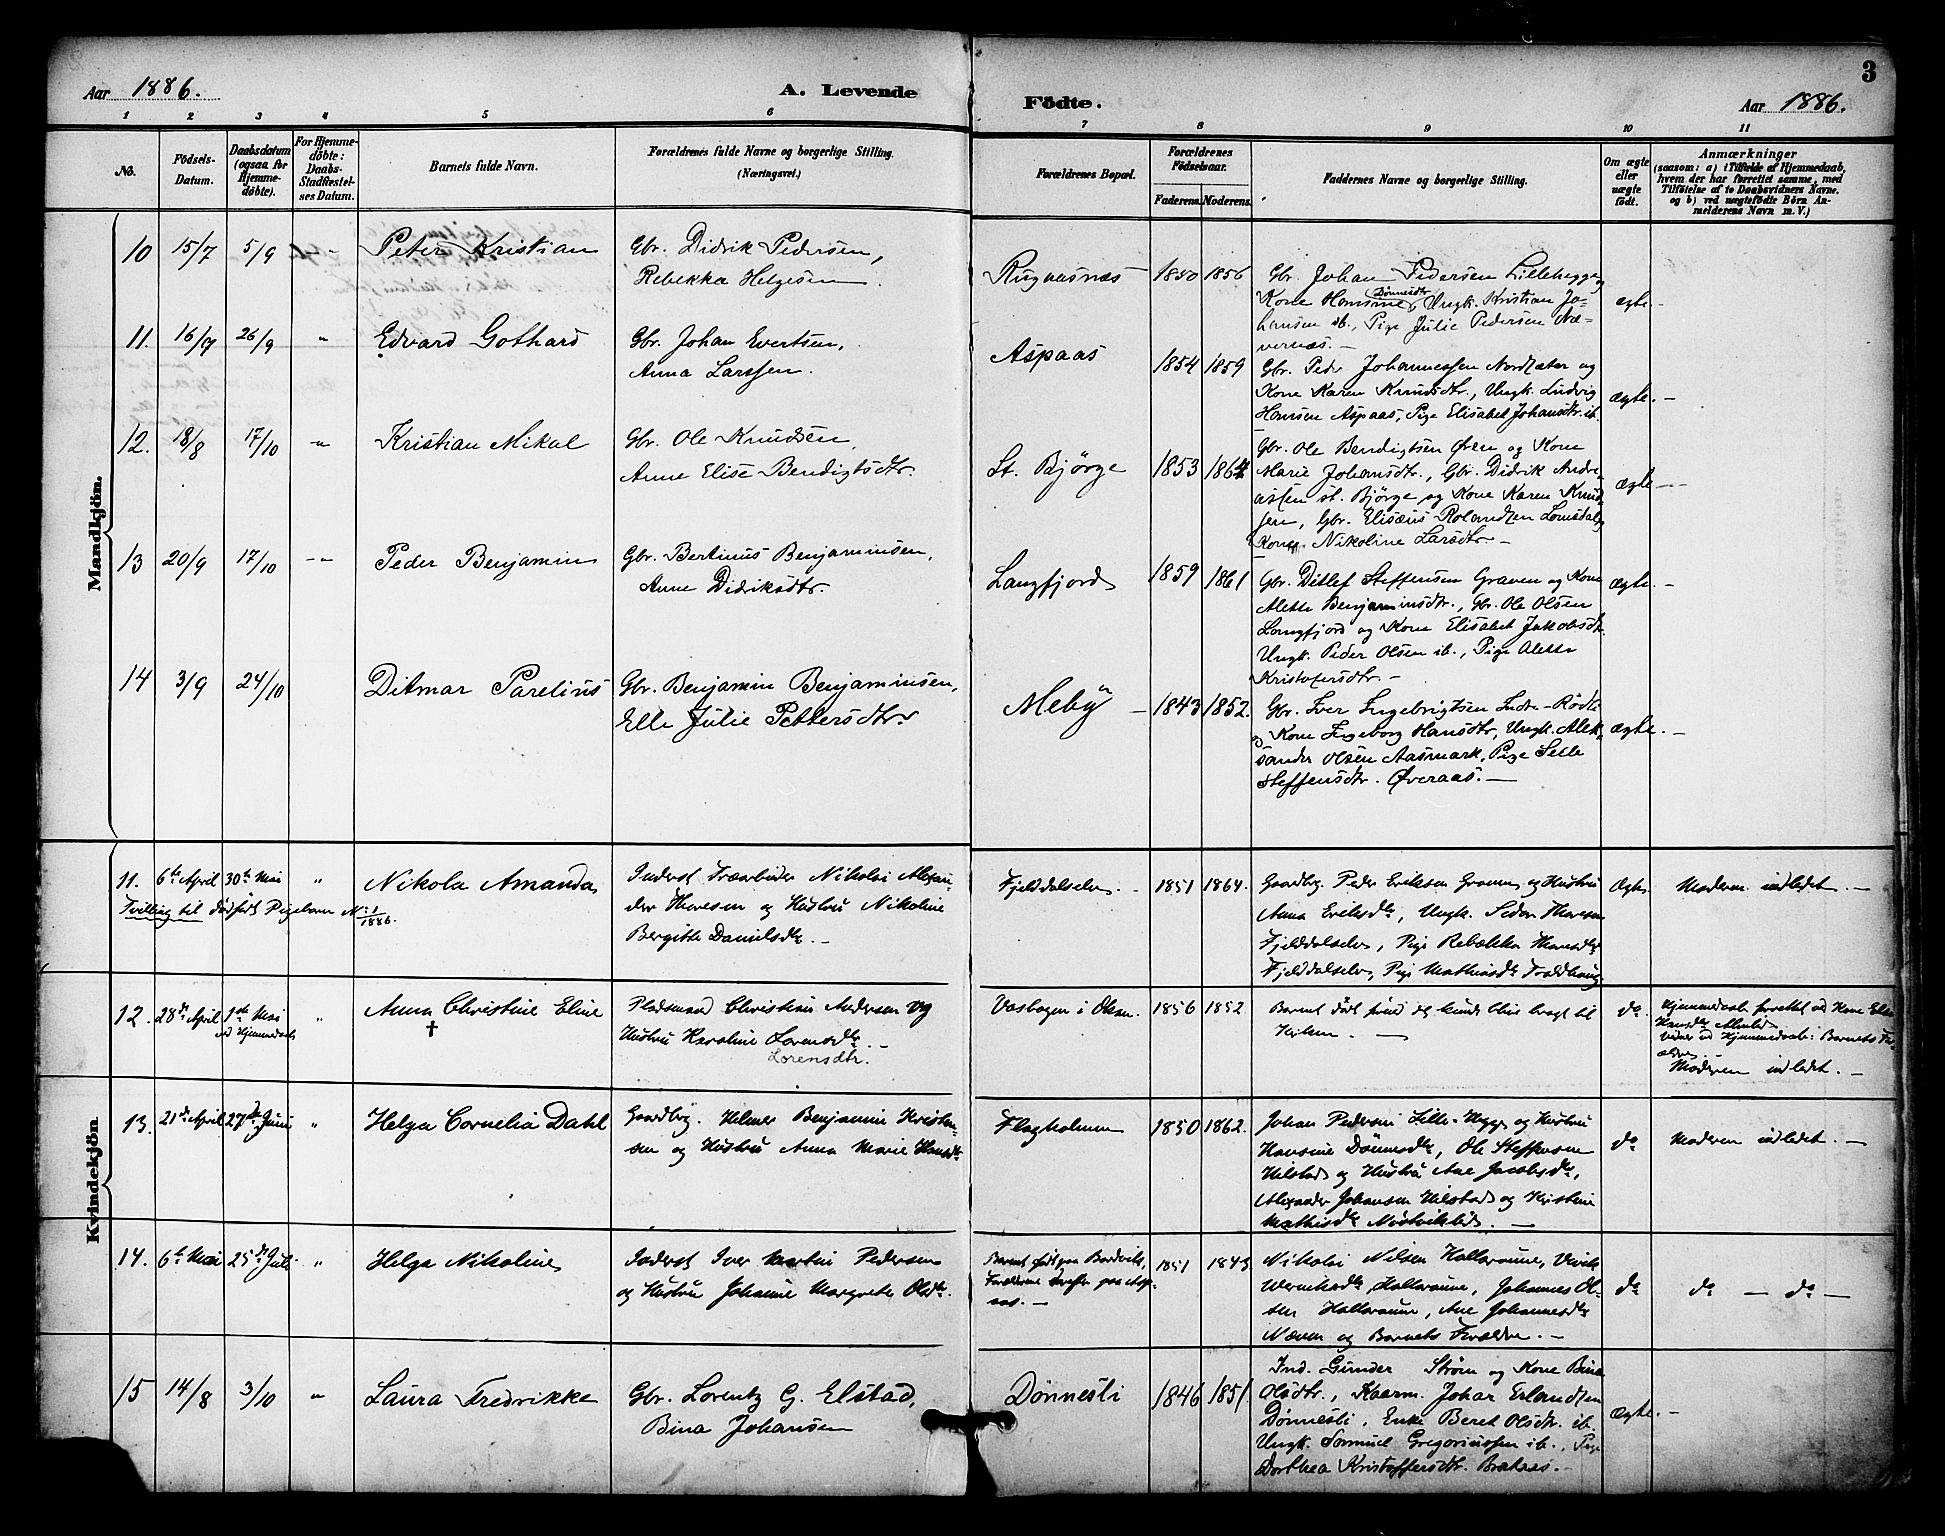 3
Aar 1886.
A. Levende
Födte.
Aar 1886.
1 2 3 4 5 6 7 8 9 10 11
No.
Födsels-
Datum.
Daabsdatum
(ogsaa for
Hjemme-
døbte).
For Hjemme-
døbte:
Daabs-
Stadfæstel-
ses Datum.
Barnets fulde Navn.
Forældrenes fulde Navne og borgerlige Stilling.
(Næringsvei.)
Forældrenes Bopæl.
Forældrenes
Födselsaar.
Faderens. Moderens.
Faddernes Navne og borgerlige Stilling.
Om ægte
eller
uægte
født.
Anmærkninger
(saasom: a) i Tilfælde af Hjemmedaab,
hvem der har forrettet samme, med
Tilføielse af to Daabsvidners Navne.
og b) ved uægtefødte Börn An-
melderens Navn m. V.)
Mandkjön.
10 15/7 5/9 Peter Kristian
Gbr. Didrik Pedersen,
Rebekka Helgesen.
Rugaasnæs 1850 1856
Gbr. Johan Pedersen Lillehegge og
Kone Hansine Dønnesdtr, Ungk. Kristian Jo-
hansen ib., Pige Julie Pedersen Næ-
vernæs. —
ægte —
11. 16/7 26/9 " Edvard Gothard
Gbr. Johan Evertsen,
Anna Larssen.
Aspaas 1854 1859
Gbr. Peder Johannessen Nordsæter og
Kone Karen Knudsdtr., Ungk. Ludvig
Hansen Aspaas, Pige Elisabet Johansdtr. ib.
ægte. —
12. 18/8 17/10 " Kristian Mikal
Gbr. Ole Knudsen,
Anne Elise Bendigtsdtr.
St. Bjørge 1853 1864
Gbr. Ole Bendigtsen Øren og Kone
Marie Johansdtr., Gbr. Didrik Andre-
assen st. Bjørge og Kone Karen Knud-
sen, Gbr. Elisæus Rolandsen Lomsdal og
Kone Nikoline Larsdtr. —
ægte —
13 20/9 17/10 " Peder Benjamin
Gbr. Bertinus Benjaminsen,
Anne Didriksdtr.
Langfjord 1859 1861
Gbr. Ditlef Steffensen Graven og Kone
Alette Benjaminsdtr., Gbr. Ole Olsen
Langfjord og Kone Elisabet Jakobsdtr.
Ungk. Peder Olsen ib., Pige Alette
Kristofersdtr. —
ægte. —
14 3/9 24/10 Ditmar Parelius
Gbr. Benjamin Benjaminsen,
Elle Julie Pettersdtr.
Meby — 1843 1852.
Gbr. Iver Ingebrigtsen Indre-Rødli
og Kone Ingeborg Hansdtr, Ungk. Alek-
sander Olsen Aasmark, Pige Selle
Steffensdtr. Øveraas. —
ægte. —
Kvindekjön.
11. 6te April 30te Mai " Nikola Amanda
Tvilling til dødfødt Pigebarn No 1/1886.
Inderst Træarbeider Nikolai Alexan
der Thoresen og Hustru Nikoline
Bergitte Danielsdtr. —
Fjelddalselv. — 1851 1864.
Gaardbrg. Peder Eriksen Graven og Hustru
Anna Eriksdtr, Ungk. Peder Thoresen
Fjelddalselv, Pige Rebækka Thoresdtr
Fjelddalselv, Pige Mathisdtr Troldhaug
Ægte. Moderen indledet. —
12. 28de April 1ste Mai "
ved Hjemmedaab
Anna Christine Eline
†
Pladsmand Christian Andersen og
Hustru Karoline Lorensdtr. —
Lorensdtr.
Vasbogen i Øksn. 1856 1852
Barnet døde førend det kunde blive bragt til
Kirken. —
do.
Hjemmedaab forrettet ved Kone Elen
Hansdtr Almlid
Vidner ved Hjemmedaab: Barnets For-
ældre. —
Moderen indledet. —
13. 21de April 27de Juni " Helga Cornelia Dahl
Gaardbrg. Hilmer Benjamin Kristen-
sen og Hustru Anna Marie Hansdtr
Flagholmen 1850 1862.
Johan Pedersen Lille-Hegge og Hustru
Hansine Dønnesdtr, Ole Steffensen
Hilstad og Hustru Ane Jacobsdtr,
Alexander Johansen Hilstad og Kristine
Mathisdtr Nøstviklid. —
do Moderen indledet. —
14. 6te Mai 25de Juli " Helga Nikoline
Inderst Iver Martin Pedersen
og Hustru Johanne Margrete Olsdtr.
Barnet født paa Bordvik,
Forældrene derefter paa Asp-
aas. — 1851 1843
Nikolai Nilsen Hallaraune,
Wernikesdtr Hallaraune, Johannes Ol-
sen Hallaraune, Ane Johannesdtr
Næven og Barnets Forældre. —
do do — do —
15 14/8 3/10 " Laura Fredrikke
Gbr. Lorentz G. Elstad,
Bina Johansen
Dønnesli 1846 1851.
Ind. Gunder Strøm og Kone Bina
Olsdtr., Kaarm. Johar Erlandsen
Dønnesli, Enke Beret Olsdtr. ib.
Ungk. Samuel Gregoriussen ib., Pige
Dorthea Kristoffersdtr. Brataas. —
ægte. —